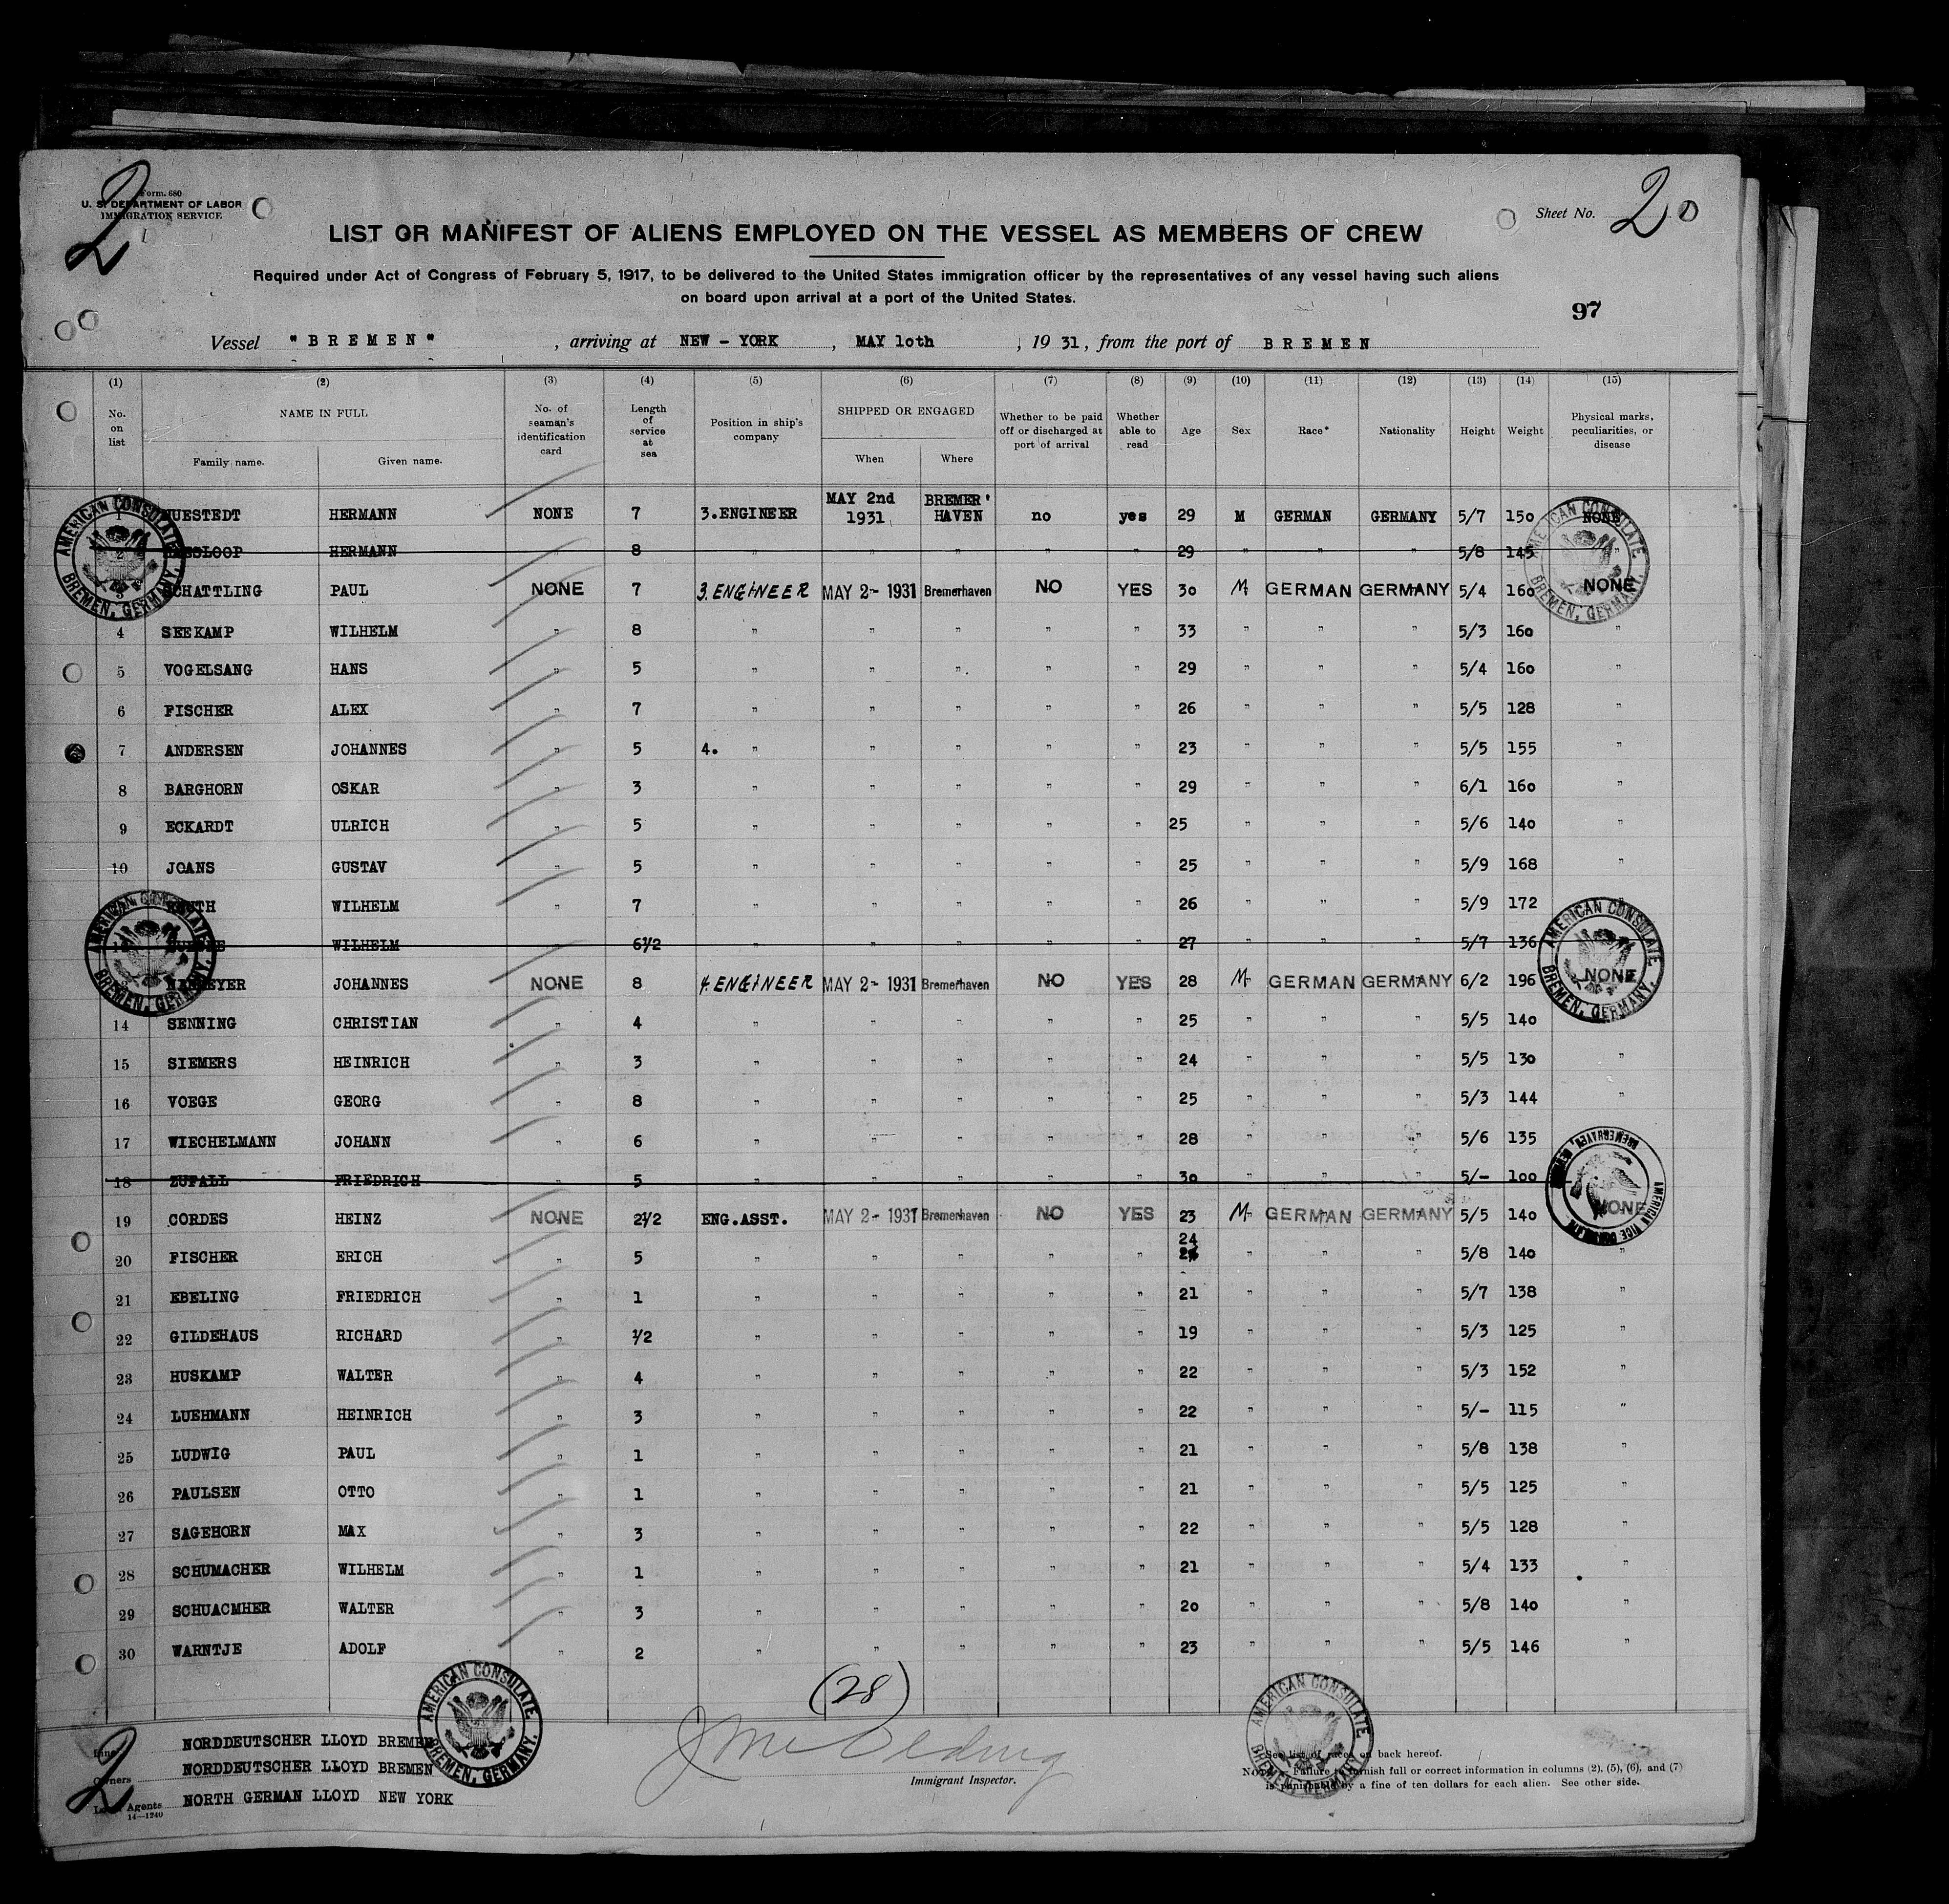 Form. 680
U. S. DEPARTMENT OF LABOR
IMMIGRATION SERVICE
2
Sheet No. 20
LIST OR MANIFEST OF ALIENS EMPLOYED ON THE VESSEL AS MEMBERS OF CREW
Required under Act of Congress of February 5, 1917, to be delivered to the United States immigration officer by the representatives of any vessel having such aliens
on board upon arrival at a port of the United States.
97
Vessel "BREMEN", arriving at NEW - YORK, MAY 1oth, 19 31, from the port of BREMEN
(1) (2) (3) (4) (5) (6) (7) (8) (9) (10) (11) (12) (13) (14) (15)
No. on list NAME IN FULL Family name. Given name. No. of seaman's identification card Length of service at sea Position in ship's company SHIPPED OR ENGAGED When Where Whether to be paid off or discharged at port of arrival Whether able to read Age Sex Race* Nationality Height Weight Physical marks, peculiarities, or disease
1 HERMANN NONE 7 3.ENGINEER MAY 2nd 1931 BREMER' HAVEN no yes 29 M GERMAN GERMANY 5/7 15o NONE
2 HERMANN 8 " " " " " 29 " " " 5/8 145 "
3 SCHATTLING PAUL NONE 7 3.ENGINEER MAY 2- 1931 Bremerhaven NO YES 3o M GERMAN GERMANY 5/4 16o NONE
4 SEEKAMP WILHELM " 8 " " " " " 33 " " " 5/3 16o "
5 VOGELSANG HANS " 5 " " " " " 29 " " " 5/4 16o "
6 FISCHER ALEX " 7 " " " " " 26 " " " 5/5 128 "
7 ANDERSEN JOHANNES " 5 4. " " " " " 23 " " " 5/5 155 "
8 BARGHORN OSKAR " 3 " " " " " 29 " " " 6/1 16o "
9 ECKARDT ULRICH " 5 " " " " " 25 " " " 5/6 14o "
10 JOANS GUSTAV " 5 " " " " " 25 " " " 5/9 168 "
WILHELM " 7 " " " " " 26 " " " 5/9 172 "
WILHELM 6½ " " " " " 27 " " " 5/7 136
JOHANNES NONE 8 4.ENGINEER MAY 2- 1931 Bremerhaven NO YES 28 M GERMAN GERMANY 6/2 196 NONE
14 SENNING CHRISTIAN " 4 " " " " " 25 " " " 5/5 14o "
15 SIEMERS HEINRICH " 3 " " " " " 24 " " " 5/5 13o "
16 VOEGE GEORG " 8 " " " " " 25 " " " 5/3 144 "
17 WIECHELMANN JOHANN " 6 " " " " " 28 " " " 5/6 135
18 ZUFALL FRIEDRICH " 5 " " " " " 3o " " " 5/- 1oo
19 CORDES HEINZ NONE 2½ ENG.ASST. MAY 2- 1931 Bremerhaven NO YES 23 M GERMAN GERMANY 5/5 14o NONE
20 FISCHER ERICH " 5 " " " " " 24 " " " 5/8 14o "
21 EBELING FRIEDRICH " 1 " " " " " 21 " " " 5/7 138 "
22 GILDEHAUS RICHARD " ½ " " " " " 19 " " " 5/3 125 "
23 HUSKAMP WALTER " 4 " " " " " 22 " " " 5/3 152 "
24 LUEHMANN HEINRICH " 3 " " " " " 22 " " " 5/- 115 "
25 LUDWIG PAUL " 1 " " " " " 21 " " " 5/8 138 "
26 PAULSEN OTTO " 1 " " " " " 21 " " " 5/5 125 "
27 SAGEHORN MAX " 3 " " " " " 22 " " " 5/5 128 "
28 SCHUMACHER WILHELM " 1 " " " " " 21 " " " 5/4 133 "
29 SCHUACMHER WALTER " 3 " " " " " 2o " " " 5/8 14o "
30 WARNTJE ADOLF " 2 " " " " " 23 " " " 5/5 146 "
AMERICAN CONSULATE BREMEN, GERMANY.
AMERICAN CONSULATE BREMEN, GERMANY.
AMERICAN CONSULATE BREMEN, GERMANY.
AMERICAN CONSULATE BREMEN, GERMANY.
AMERICAN CONSULATE BREMEN, GERMANY.
AMERICAN CONSULATE BREMEN, GERMANY.
(28)
2
NORDDEUTSCHER LLOYD BREMEN
Owners NORDDEUTSCHER LLOYD BREMEN
Agents NORTH GERMAN LLOYD NEW YORK
14—1240
Immigrant Inspector.
See list of races on back hereof.
Failure to furnish full or correct information in columns (2), (5), (6), and (7)
is punishable by a fine of ten dollars for each alien. See other side.